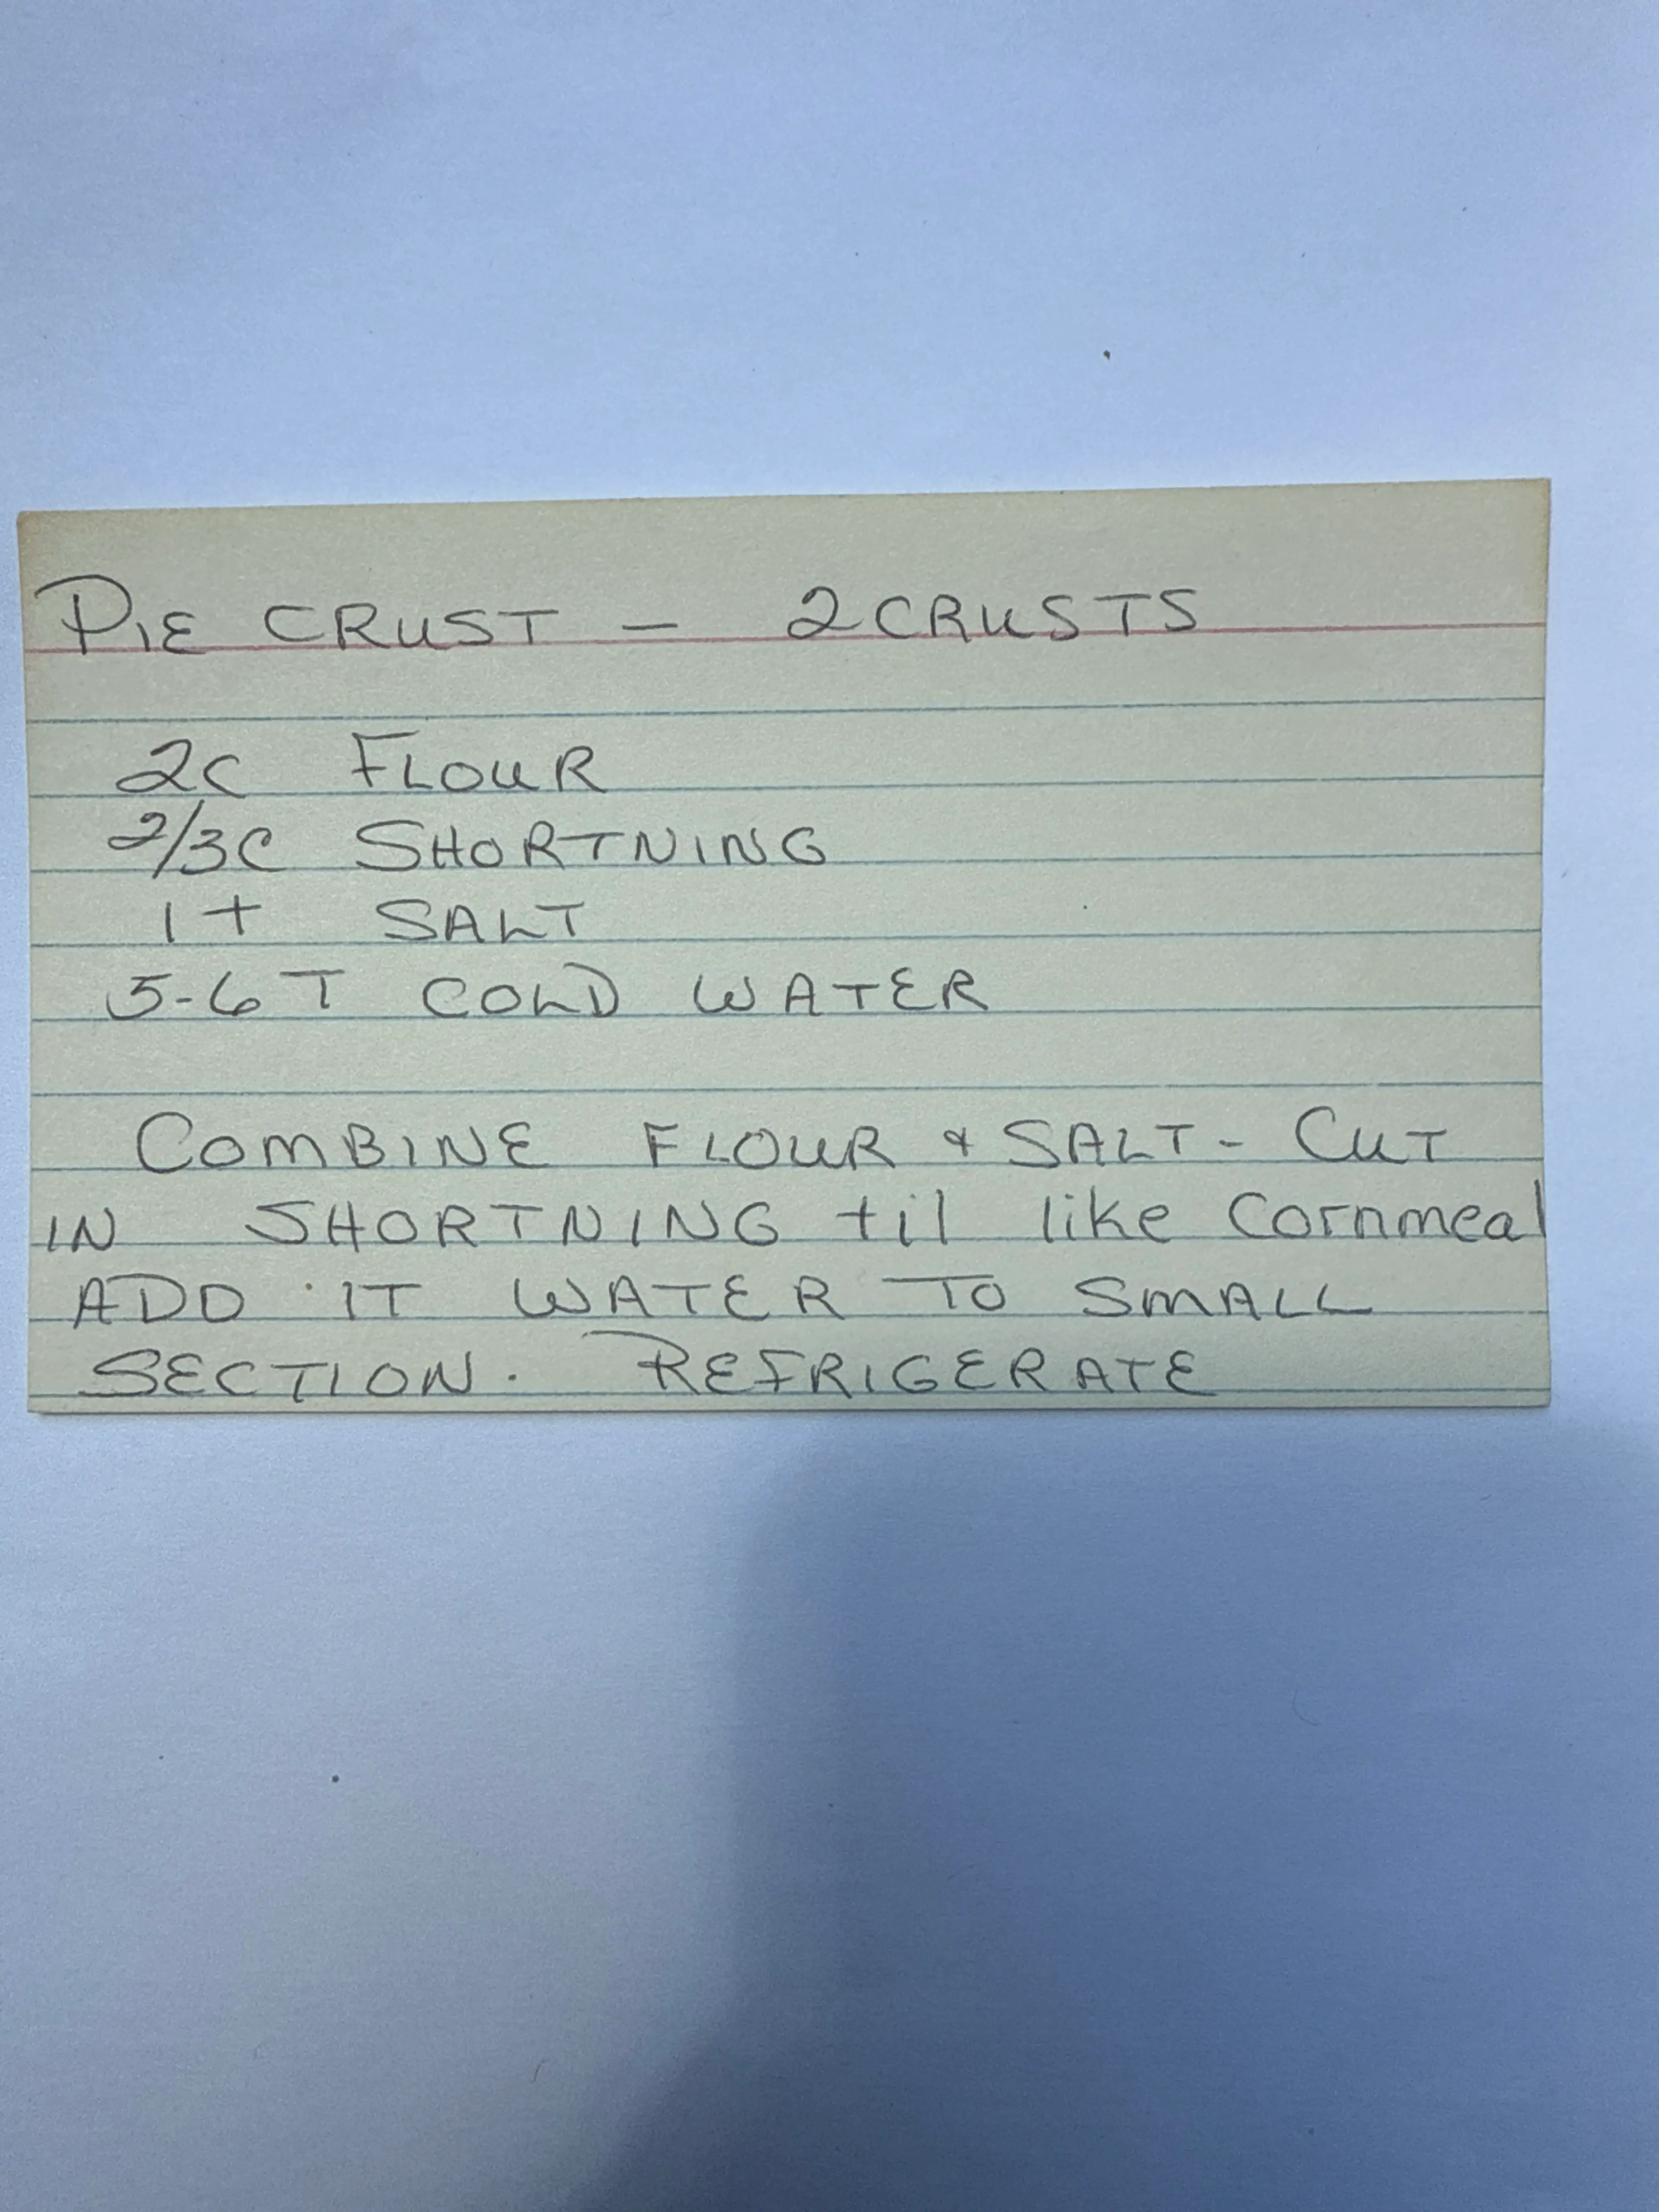 PIE CRUST - 2 CRUSTS
2C FLOUR
2/3C SHORTNING
1 t SALT
5-6 T COLD WATER
COMBINE FLOUR & SALT - CUT
IN SHORTNING til like Cornmeal
ADD 1T WATER TO SMALL
SECTION. REFRIGERATE